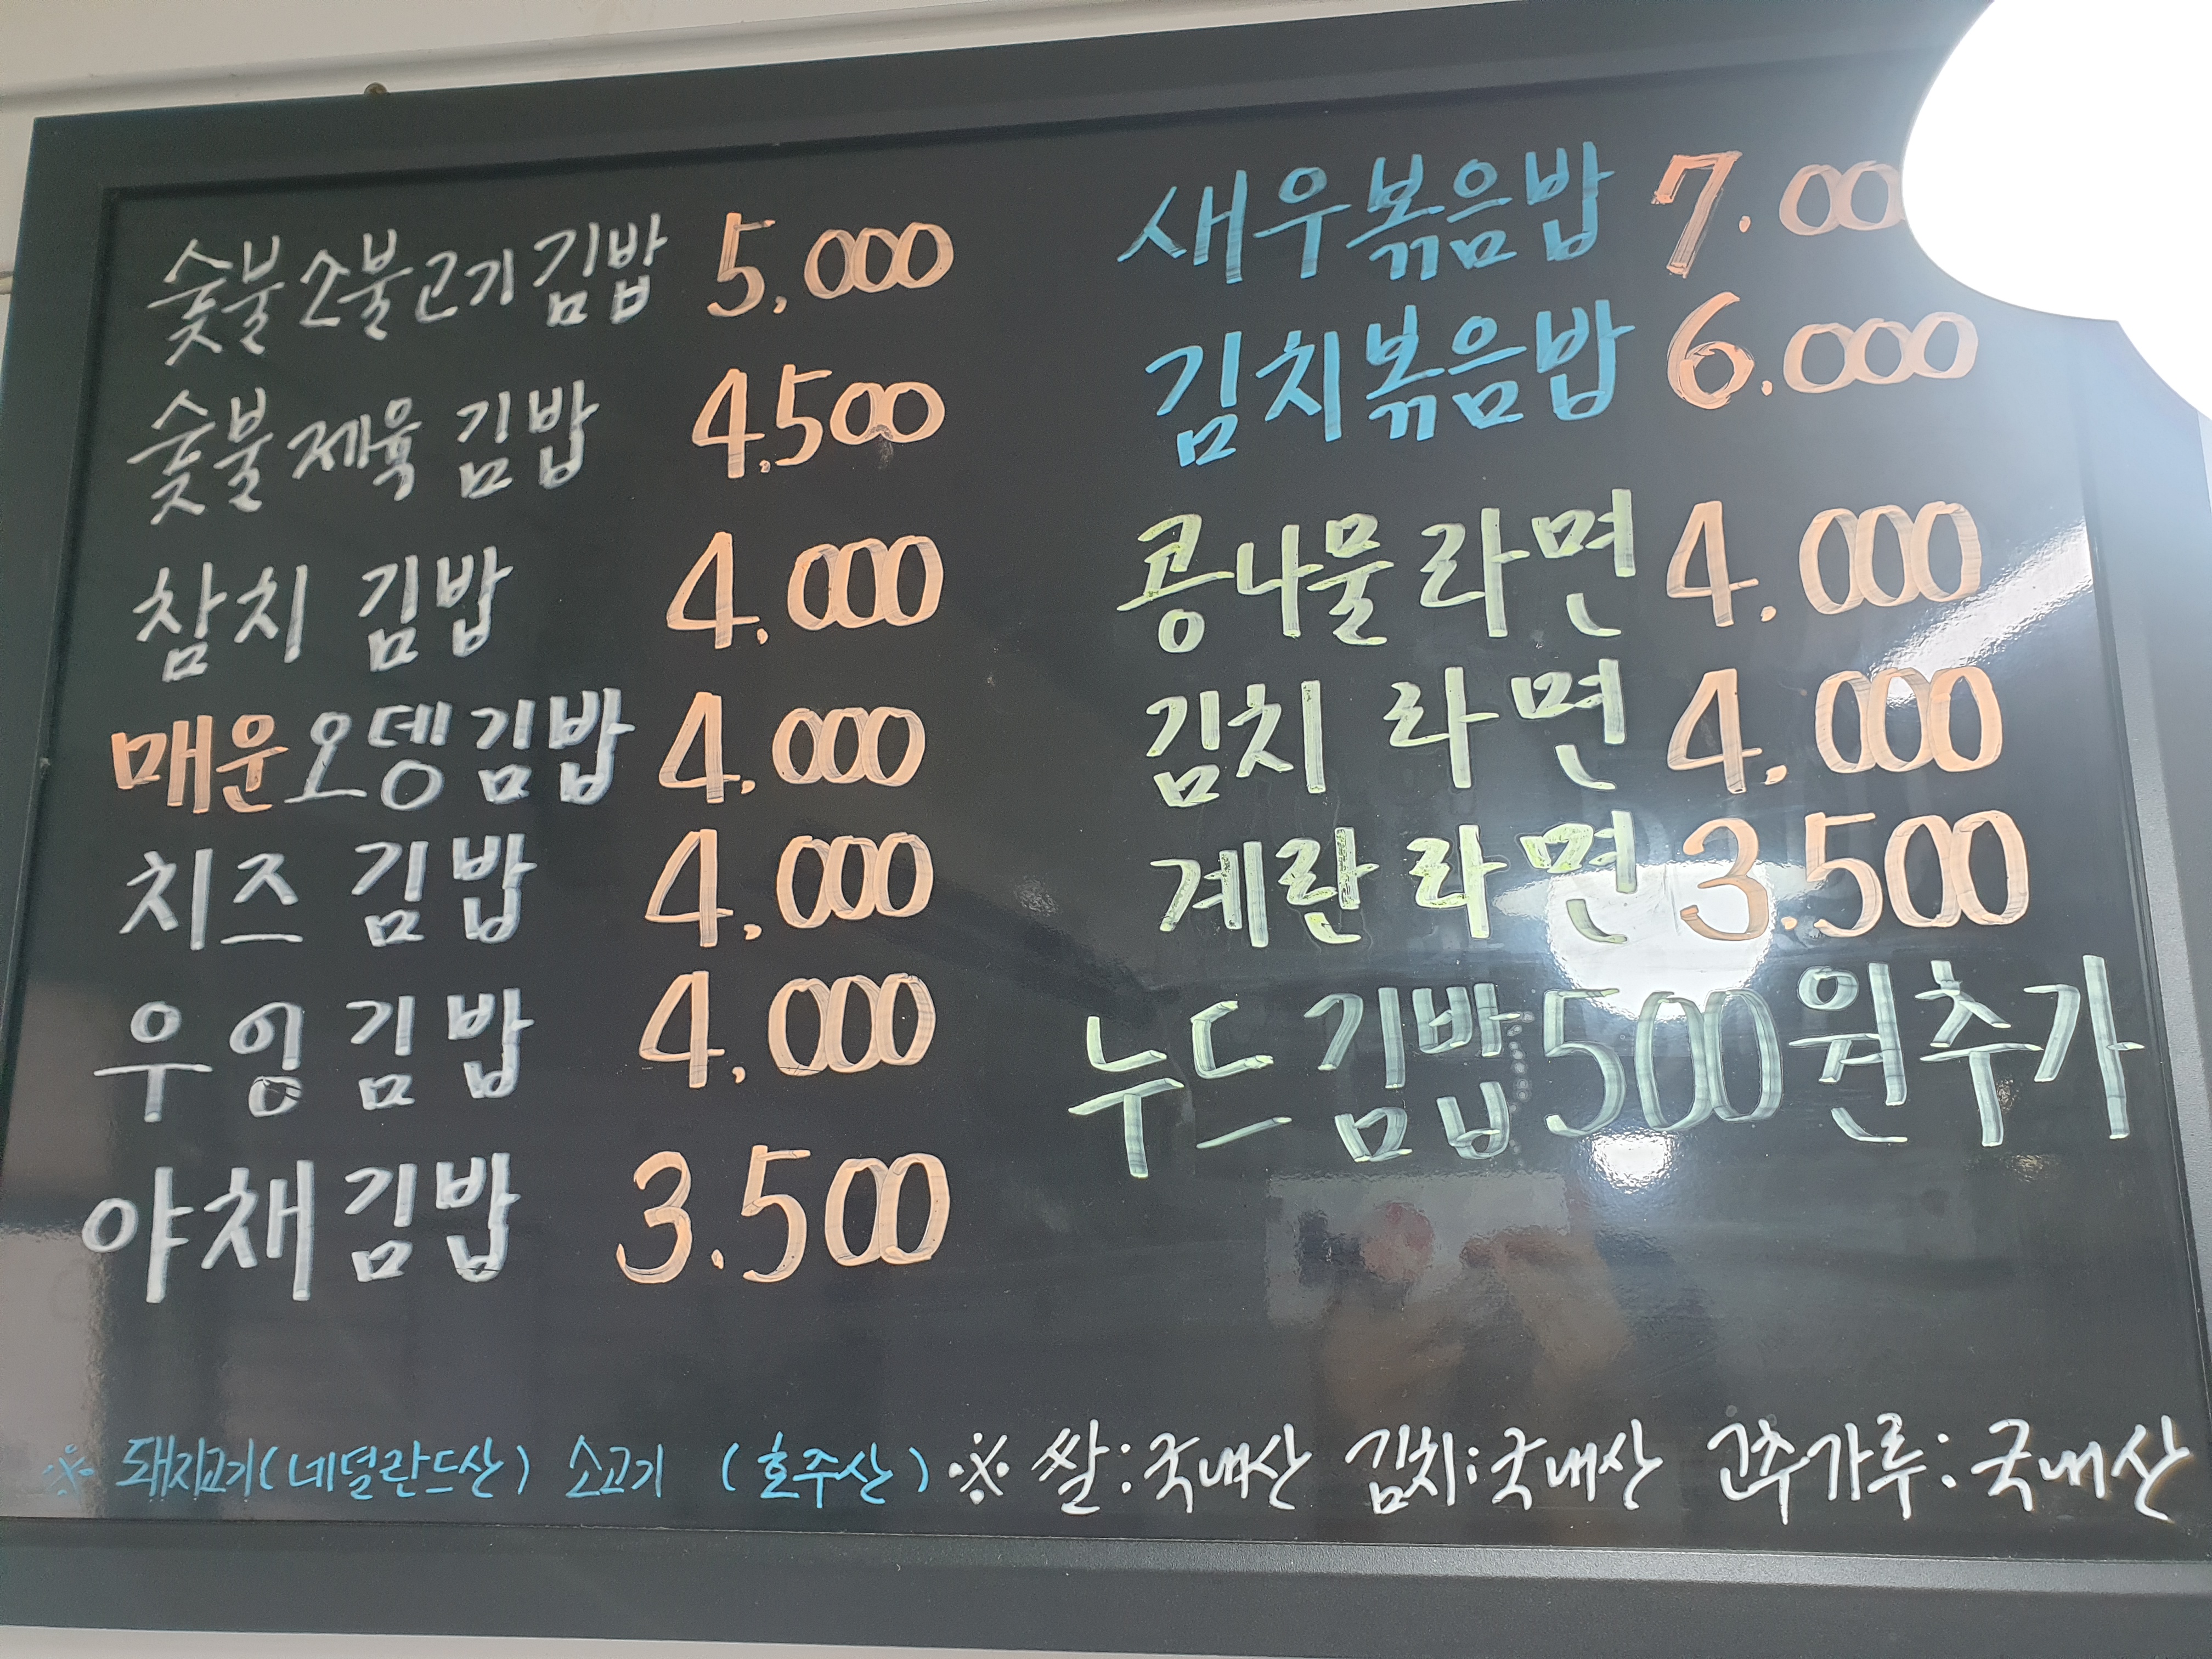 숯불소불고기김밥 5,000
숯불제육 김밥 4,500
참치 김밥 4,000
매운오뎅김밥 4,000
치즈 김밥 4,000
우엉김밥 4,000
야채김밥 3.500
새우볶음밥 7.00
김치볶음밥 6.000
콩나물라면 4,000
김치 라면 4,000
계란라면 3.500
누드김밥500원추가
※ 돼지고기(네덜란드산) 소고기 (호주산) ※ 쌀:국내산 김치:국내산 고추가루:국내산